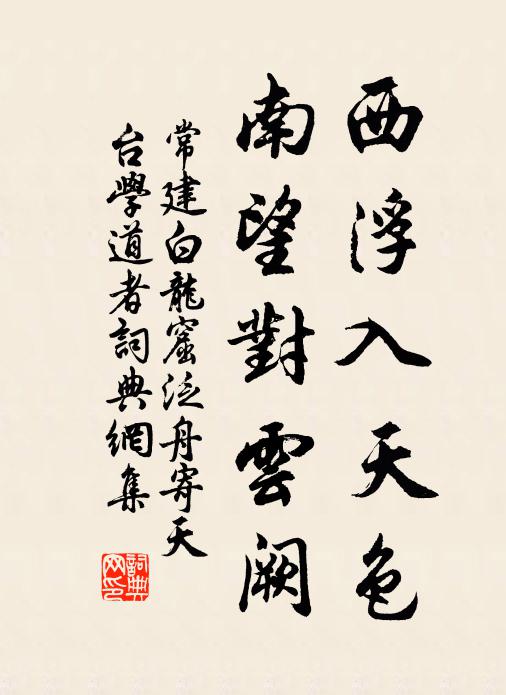 西浮入天色
南望對雲闕
常建白龍窟泛舟寄天
台學道者詞典網集
詞典
网印